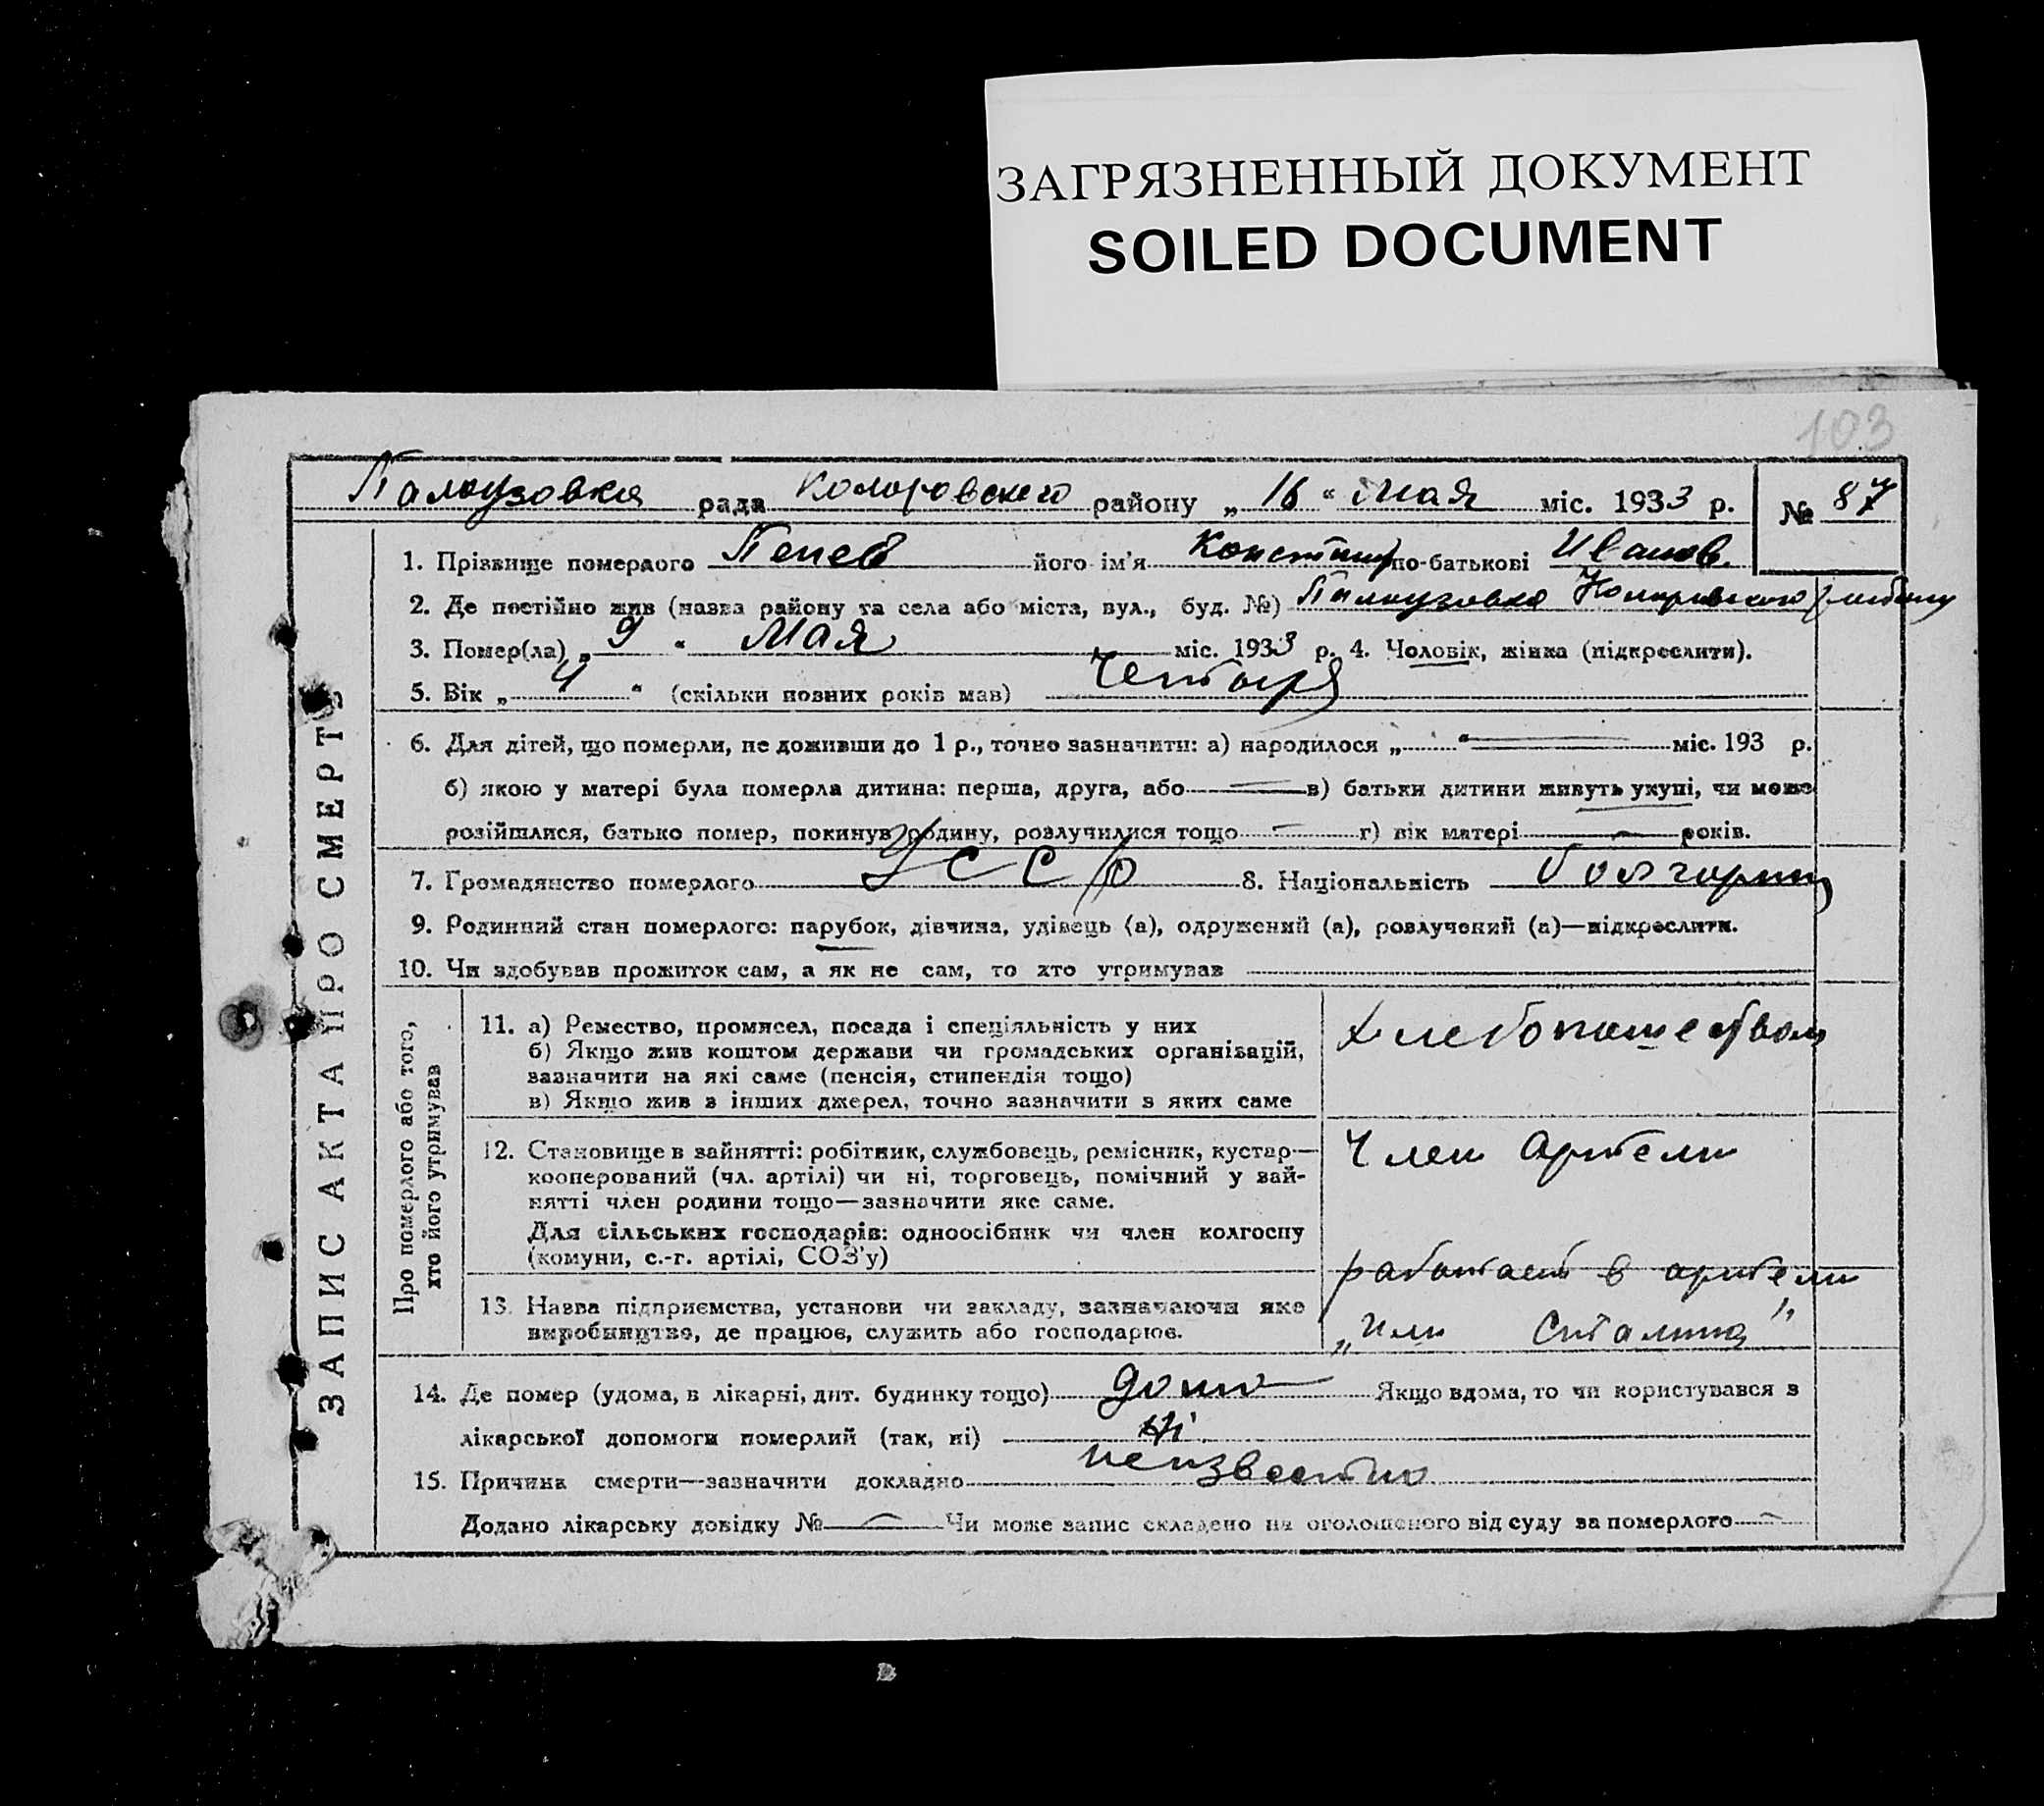 ЗАГРЯЗНЕННЫЙ ДОКУМЕНТ
SOILED DOCUMENT
103
Палаузовка рада Коларовского району „ 16 “ Мая міс. 1933 р. № 87
1. Прізвище померлого Пенев його ім'я Констант по-батькові Иванов.
2. Де постійно жив (назва району та села або міста, вул., буд. №) Палаузовка Коларовского району
3. Помер(ла) „ 9 “ Мая міс. 1933 р. 4. Чоловік, жінка (підкреслити).
5. Вік „ 4 “ (скільки повних років мав) Четыря
6. Для дітей, що померли, не доживши до 1 р., точно зазначити: а) народилося „ “ міс. 193 р.
б) якою у матері була померла дитина: перша, друга, або в) батьки дитини живуть укупі, чи може
розійшлися, батько помер, покинув родину, розлучилися тощо г) вік матері років.
7. Громадянство померлого УССР 8. Національність болгарин
9. Родинний стан померлого: парубок, дівчина, удівець (а), одружений (а), розлучений (а)—підкреслити.
10. Чи здобував прожиток сам, а як не сам, то хто утримував
ЗАПИС АКТА ПРО СМЕРТЬ
Про померлого або того, хто його утримував
11. а) Ремество, промисел, посада і спеціяльність у них
б) Якщо жив коштом держави чи громадських організацій,
зазначити на які саме (пенсія, стипендія тощо)
в) Якщо жив з інших джерел, точно зазначити з яких саме
хлебопашеством
12. Становище в зайнятті: робітник, службовець, ремісник, кустар—
кооперований (чл. артілі) чи ні, торговець, помічний у зай-
нятті член родини тощо—зазначити яке саме.
Для сільських господарів: одноосібник чи член колгоспу
(комуни, с.-г. артілі, СОЗ'у)
Член артели
13. Назва підприємства, установи чи закладу, зазначаючи яке
виробництво, де працює, служить або господарює.
работает в артели
„Им Сталина"
14. Де помер (удома, в лікарні, дит. будинку тощо) дома Якщо вдома, то чи користувався з
лікарської допомоги померлий (так, ні) Ні
15. Причина смерти—зазначити докладно неизвестно
Додано лікарську довідку № Чи може запис складено на оголошеного від суду за померлого